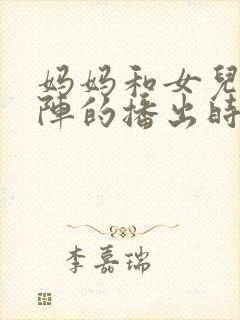 妈妈和女兒
陣的播出時
李嘉瑞